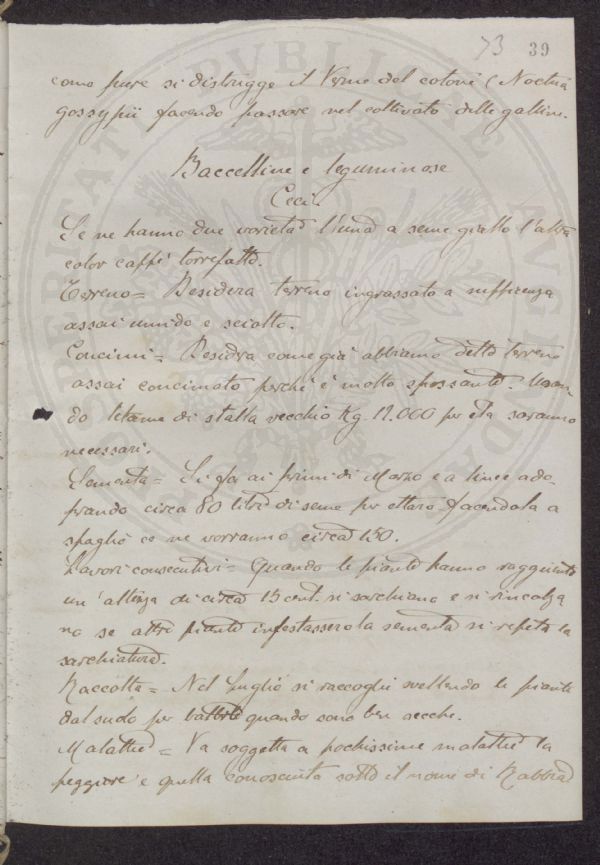 73 39
come pure si distrugge il Verme del cotone (Noctua
gossypii facendo passare nel coltivato delle galline.
Baccelline e leguminose
Ceci.
Se ne hanno due varietà l'una a seme giallo l'altra
color caffè torrefatto.
Terreno = Desidera terreno ingrassato a sufficenza
assai umido e sciolto.
Concimi = Desidera come già abbiamo detto terreno
assai concimato perchè è molto spossante. Usan-
do letame di stalla vecchio Kg. 12.000 per eta saranno
necessari.
Sementa = Si fa ai primi di Marzo e a linee ado-
prando circa 80 litri di seme per ettaro facendola a
spaglio ce ne vorranno circa 150.
Lavori consecutivi = Quando le piante hanno raggiunto
un'altezza di circa 15 cent. si sarchiano e si rincalza
no se altre piante infestassero la sementa si repita la
sarchiatura.
Raccolta = Nel Luglio si raccoglie svellendo le piante
dal suolo per batterle quando sono ben secche.
Malattie = Va soggetta a pochissime malattie la
peggiore è quella conosciuta sotto il nome di Rabbia
PRO SPERITATI PVBLICAE AVGENDAE